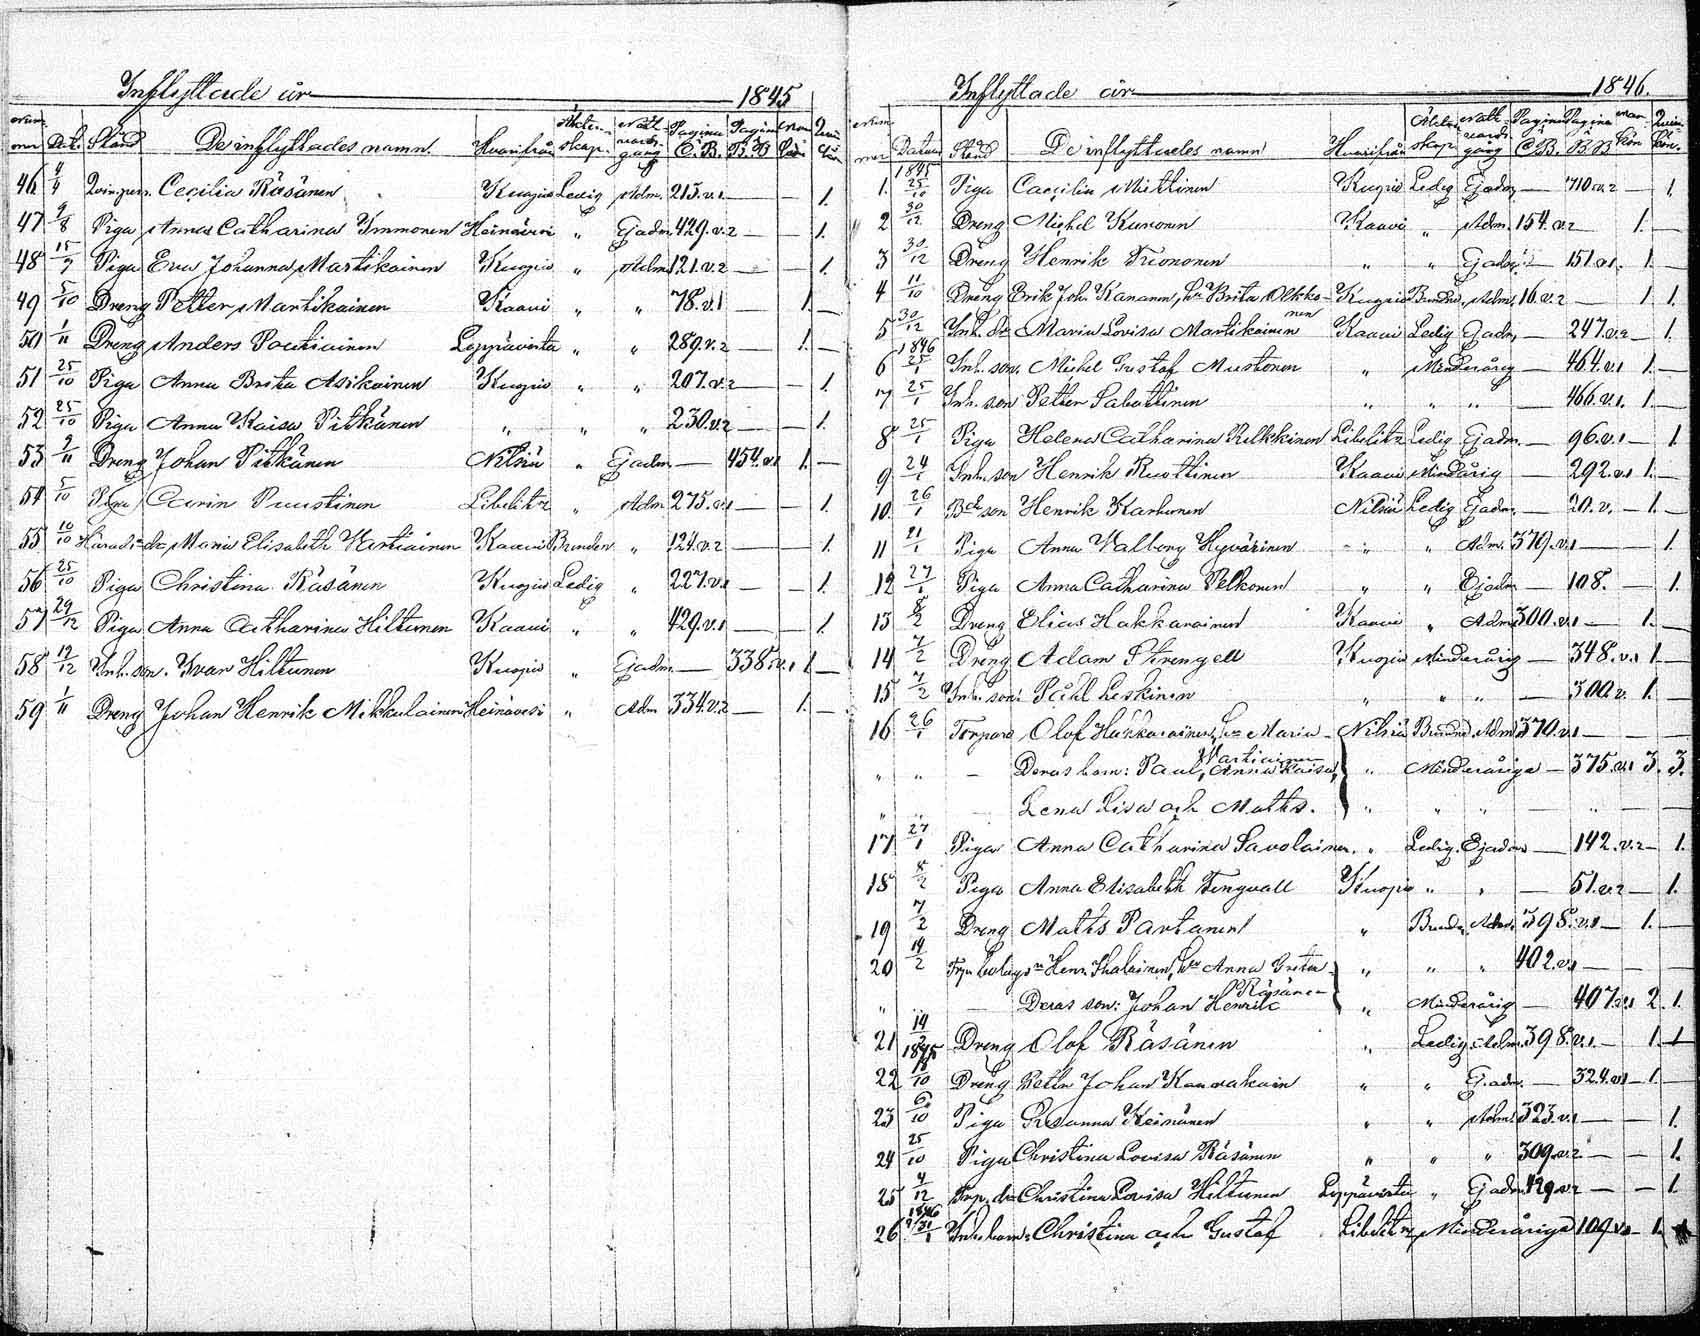 Inflyttade år 1845
Dat. Stånd De inflyttades namn. Hvarifrån Äkten-skap. Natt-vards-gång Pagina C.B. Pagina B.B Man kön Qvin kön
46 4/4 Qvin.pers. Cecilia Räsänen Kuopio Ledig Adm. 215.v.1 — — 1.
47 9/8 Piga Anna Catharina Immonen Heinävesi " Ejadm 429.v.2 — — 1.
48 15/9 Piga Eva Johanna Martikainen Kuopio " Adm 121.v.2 — — 1.
49 5/10 Dreng Petter Martikainen Kaavi " " 78.v.1 — 1. —
50 1/11 Dreng Anders Poutiainen Leppävirta " " 289.v.2 — 1. —
51 25/10 Piga Anna Brita Asikainen Kuopio " " 207.v.2 — — 1.
52 25/10 Piga Anna Kaisa Pitkänen " " " 230.v.2 — — 1.
53 9/11 Dreng Johan Pitkänen Nilsiä " Ejadm — 454.v.1 1. —
54 5/10 Piga Carin Puustinen Libelitz " Adm 275.v.1 — — 1.
55 10/10 Maria Elisabeth Vartiainen Kaavi Bunden " 124.v.2 — — 1.
56 25/10 Piga Christina Räsänen Kuopio Ledig " 227.v.1 — — 1.
57 29/12 Piga Anna Catharina Hiltunen Kaavi " " 429.v.1 — — 1.
58 12/12 Inh. son. Ivar Hiltunen Kuopio " Ejadm — 338.v.1 1 —
59 1/11 Dreng Johan Henrik Mikkulainen Heinävesi " Adm 334.v.2 — 1. —
Inflyttade år 1846.
Datum Stånd De inflyttades namn Hvarifrån Äkten-skap Natt-vards-gång Pagina C.B. Pagina B.B Man-kön Qvin-kön.
1845
1. 25/10 Piga Caecilia Miettinen Kuopio Ledig Ejadm — 710.v.2 — 1.
2 30/12 Dreng Michel Kunonen Kaavi " Adm. 154.v.2 — 1. —
3 30/12 Dreng Henrik " " Ejadm — 151.v.1. 1. —
4 11/10 Dreng Erik Joh. Kananen, Brita Olkko-nen Kuopio Adm. 16.v.2 — 1 1.
5 30/12 Inh. dr Maria Lovisa Martikainen Kaavi Ledig Ejadm — 247.v.2 — 1.
1846
6 25/1 Inh. son. Michel Gustaf Mustonen " Minderårig — 464.v.1 1. —
7 25/1 Inh. son Petter " " " — 466.v.1. 1. —
8 25/1 Piga Helena Catharina Libelitz Ledig Ejadm. — 96.v.1 — 1.
9 24/1 Inh. son Henrik Ruottinen Kaavi Mindårig — 292.v.1 1. —
10. 26/1 son Henrik Karhunen Nilsiä Ledig Ejadm. — 20.v. — 1. —
11 21/1 Piga Anna Valborg Hyvärinen " " Adm. 379.v.1 — — 1.
12 27/1 Piga Anna Catharina Pelkonen " " Ejadm — 108. — 1.
13 8/2 Dreng Elias Hakkarainen Kaavi " Adm 300.v.1 — 1. —
14 7/2 Dreng Adam Strengell Kuopio Minderårig — 348.v.1 1. —
15 7/2 Inh. son: Påhl Leskinen " " " — 300.v. 1. —
16 26/1 Torpare Olof Hakkarainen, Maria Nilsiä Adm 370.v.1 — — —
Vartiainen
" " — Deras barn: Paul, Anna Kaisa, " Minderåriga — 375.v.1 3. 3.
" " — Lena Lisa och Maths. " " " — " — —
17 27/1 Piga Anna Catharina Savolainen. " Ledig. Ejadm — 142.v.2 — 1.
18 8/2 Piga Anna Elisabeth Tengvall Kuopio " " — 51.v.2 — 1.
19 7/2 Dreng Maths Partanen " Adm. 398.v.1 — 1. —
20 14/2 Henr. Anna Greta " " " 402.v.1 — — —
Räsänen
" — Deras son: Johan Henric " Minderårig — 407.v.1 2. 1.
21 14/2 Dreng Olof Räsänen " Ledig Adm. 398.v.1. — 1. —
1845
22 18/10 Dreng Petter Johan " " Ejadm. — 324.v.1 — 1. —
23 6/10 Piga Susanna Keinänen " " Adm. 323.v.1 — — 1.
24 25/10 Piga Christina Lovisa Räsänen " " " 309.v.2 — — 1.
25 4/12 Trp. dr Christina Lovisa Hiltunen Leppävirta " Ejadm 429.v.2 — — 1.
1846
26 31/1 Inh. barn: Christina och Gustaf Libelitz Minderåriga 109.v.1 — 1.